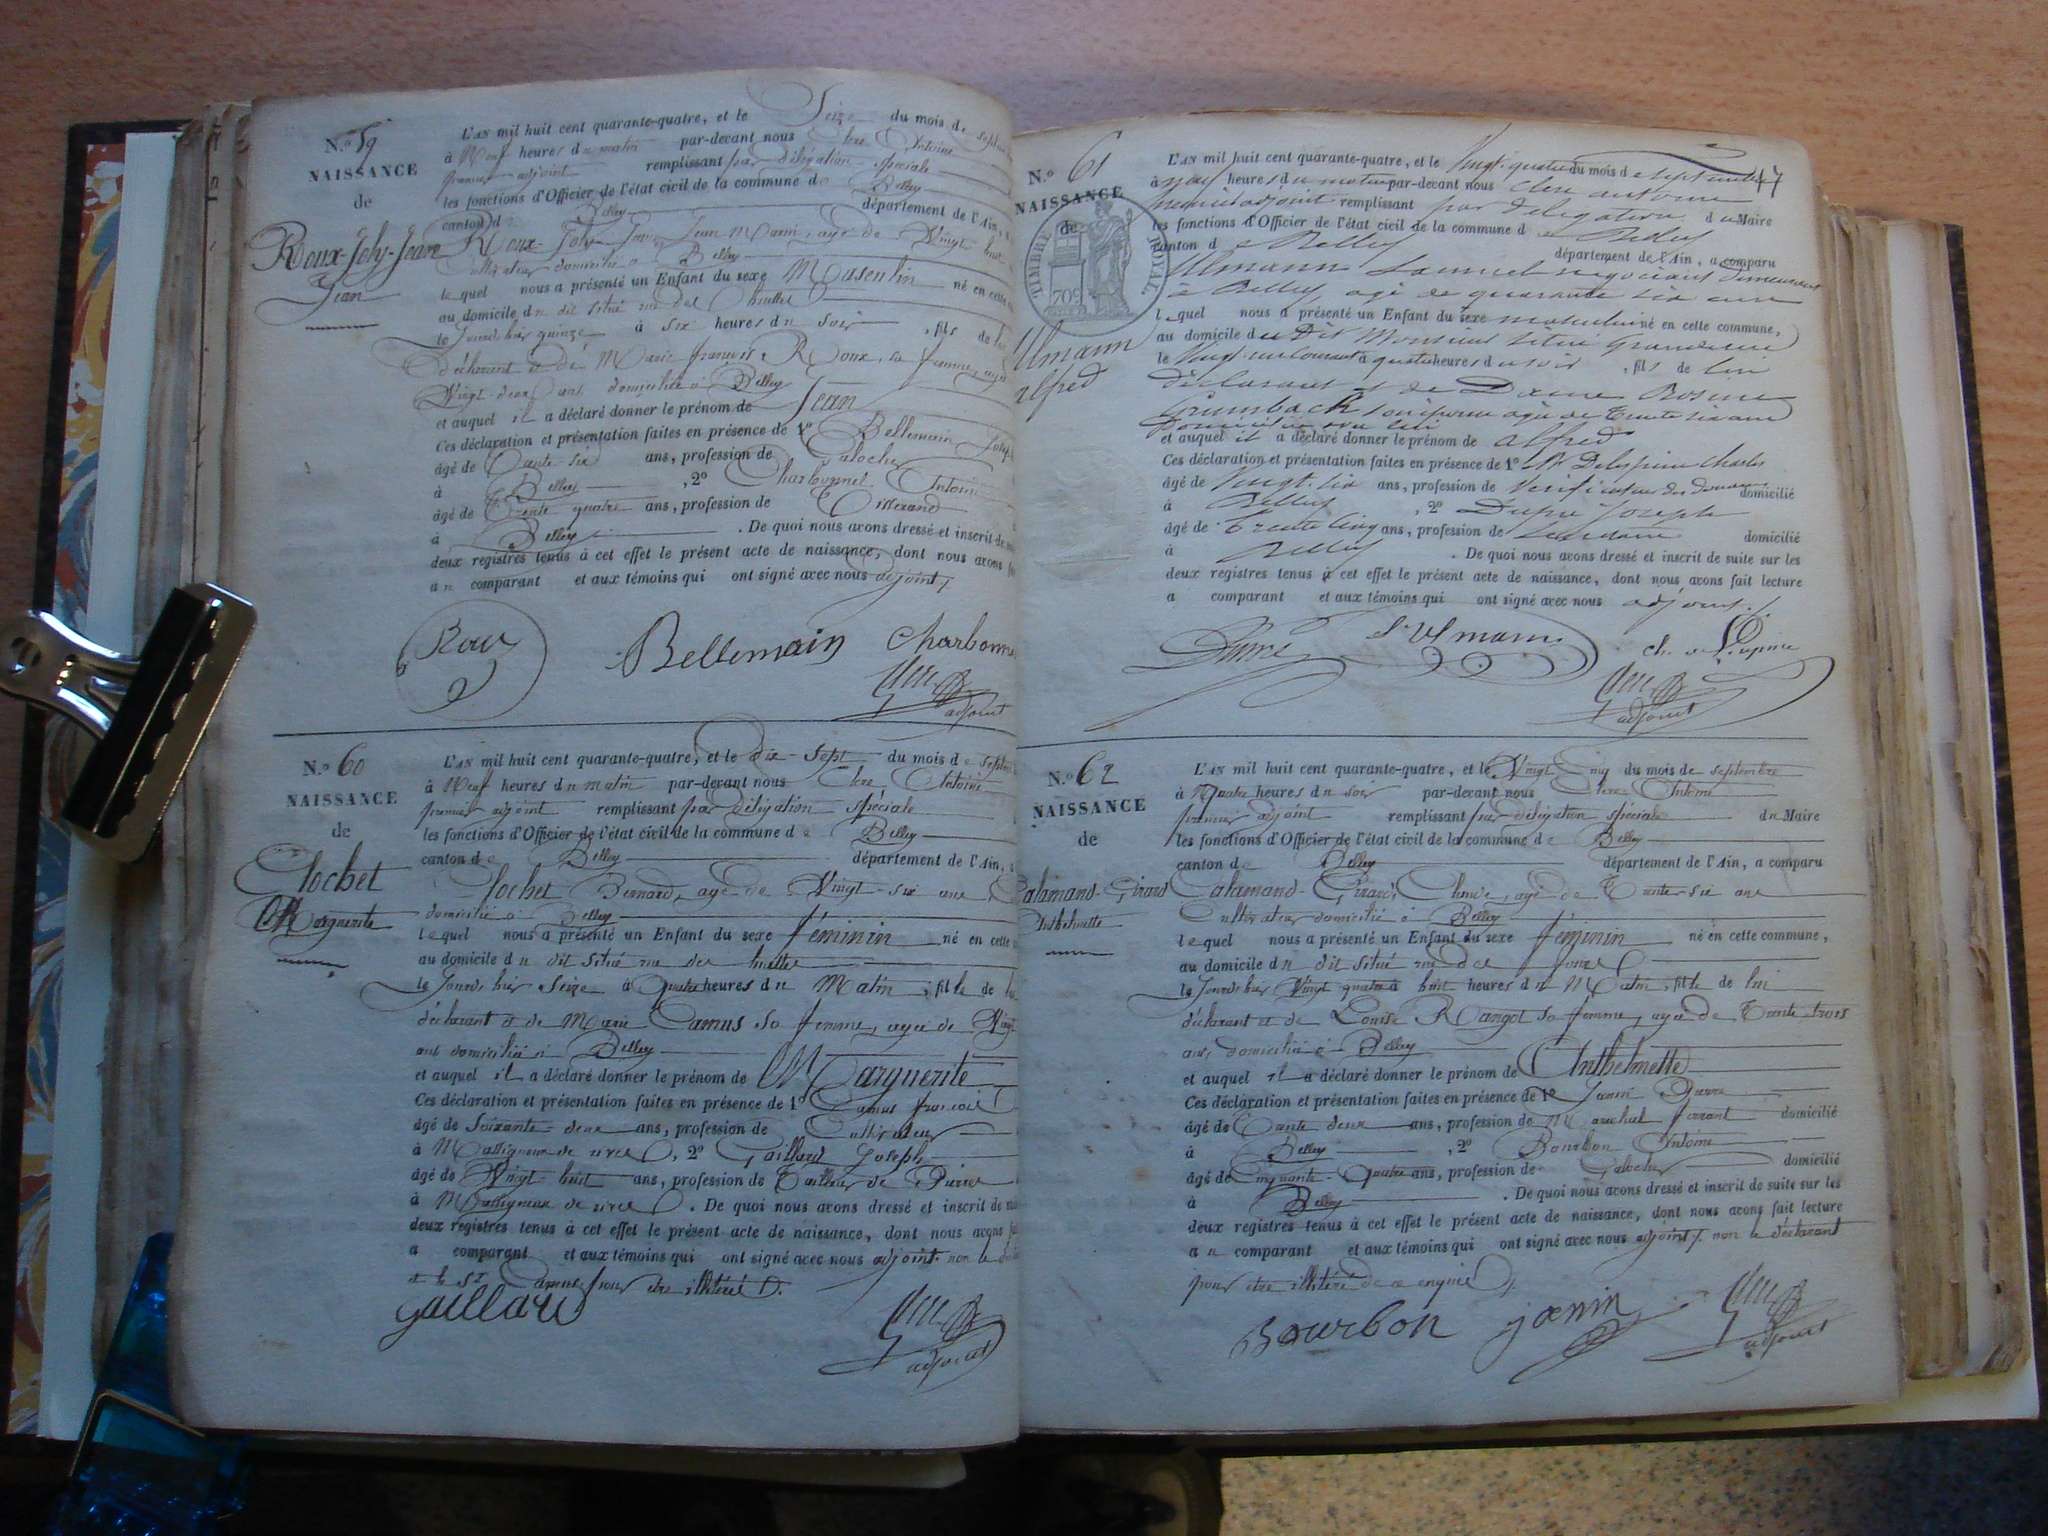 N.º 59
NAISSANCE
de
Roux-Joly-Jean
Jean
L'AN mil huit cent quarante-quatre, et le Seize du mois de septem
à Neuf heures du matin par-devant nous Clerc Antoine
premier adjoint remplissant par délégation spéciale
les fonctions d'Officier de l'état civil de la commune de Belley
canton de Belley département de l'Ain, a
Roux-Joly Jean Marie, agé de Vingt huit
Cultivateur domicilié à Belley
lequel nous a présenté un Enfant du sexe Masculin né en cette
au domicile du dit situé rue des
le Jourd'hier quinze à six heures du soir, fils de lui
déclarant et de Marie françoise Roux, sa femme, agée
Vingt-deux ans domiciliée à Belley
et auquel il a déclaré donner le prénom de Jean
Ces déclaration et présentation faites en présence de 1º Bellemain Joseph
âgé de Trente-six ans, profession de Galocher
à Belley, 2º Charbonnet Antoine
âgé de Trente quatre ans, profession de Tisserand
à Belley. De quoi nous avons dressé et inscrit de
deux registres tenus à cet effet le présent acte de naissance, dont nous avons
au comparant et aux témoins qui ont signé avec nous adjoint
Roux Bellemain Charbonne
adjoint
N.º 60
NAISSANCE
de
Clochet
Marguerite
L'AN mil huit cent quarante-quatre, et le dix-sept du mois de septem
à Neuf heures du matin par-devant nous Clerc Antoine
premier adjoint remplissant par délégation spéciale
les fonctions d'Officier de l'état civil de la commune de Belley
canton de Belley département de l'Ain, a
Clochet Bernard, agé de Vingt-six ans
domicilié à Belley
lequel nous a présenté un Enfant du sexe féminin né en cette
au domicile du dit situé rue des
le Jourd'hier Seize à Quatre heures du Matin, fille de lui
déclarant et de Marie Camus sa femme, agée de Vingt
ans domiciliée à Belley
et auquel il a déclaré donner le prénom de Marguerite
Ces déclaration et présentation faites en présence de 1º Camus françois
âgé de Soixante-deux ans, profession de Cultivateur
à Massigneux de rives, 2º Gaillard Joseph
âgé de Vingt huit ans, profession de Tailleur de Pierres
à Massigneux de rives. De quoi nous avons dressé et inscrit de
deux registres tenus à cet effet le présent acte de naissance, dont nous avons
a comparant et aux témoins qui ont signé avec nous adjoint non le
et le Sr Camus pour être illitéré
Gaillard
adjoint
47
N.º 61
NAISSANCE
de
TIMBRE ROYAL
70c
Ulmann
alfred
L'AN mil huit cent quarante-quatre, et le Vingt-quatre du mois de septembre
à neuf heures du matin par-devant nous Clerc antoine
premier adjoint remplissant par delegation du Maire
les fonctions d'Officier de l'état civil de la commune de Belley
canton de Belley département de l'Ain, a comparu
Ulmann Samuel négociant demeurant
à Belley, agé de quarante six ans
lequel nous a présenté un Enfant du sexe masculin né en cette commune,
au domicile du Dit Monsieur situé grande rue
le Vingt un courant à quatre heures du soir, fils de lui
déclarant et de Dame Rosine
Grumbach son épouse agée de Trente six ans
domiciliée avec lui
et auquel il a déclaré donner le prénom de alfred
Ces déclaration et présentation faites en présence de 1º Mr Delespine Charles
âgé de Vingt-six ans, profession de Vérificateur des domaines domicilié
à Belley, 2º Dupré Joseph
âgé de Trente cinq ans, profession de domicilié
à Belley. De quoi nous avons dressé et inscrit de suite sur les
deux registres tenus à cet effet le présent acte de naissance, dont nous avons fait lecture
a comparant et aux témoins qui ont signé avec nous adjoint
S Ulmann
adjoint
N.º 62
NAISSANCE
de
Calamand-Girard
Anthelmette
L'AN mil huit cent quarante-quatre, et le Vingt Cinq du mois de septembre
à Quatre heures du soir par-devant nous Clerc Antoine
premier adjoint remplissant par délégation spéciale du Maire
les fonctions d'Officier de l'état civil de la commune de Belley
canton de Belley département de l'Ain, a comparu
Calamand-Girard, Claude, agé de Trente-six ans
Cultivateur domicilié à Belley
lequel nous a présenté un Enfant du sexe féminin né en cette commune,
au domicile du dit situé rue des
le Jourd'hier Vingt quatre à huit heures du Matin, fille de lui
déclarant et de Louise Rangot sa femme, agée de Trente-trois
ans, domiciliée à Belley
et auquel il a déclaré donner le prénom de Anthelmette
Ces déclaration et présentation faites en présence de 1º Janin Pierre
âgé de Trente deux ans, profession de Maréchal ferrant domicilié
à Belley, 2º Bourbon Antoine
âgé de Cinquante-Quatre ans, profession de Galocher domicilié
à Belley. De quoi nous avons dressé et inscrit de suite sur les
deux registres tenus à cet effet le présent acte de naissance, dont nous avons fait lecture
au comparant et aux témoins qui ont signé avec nous adjoint non le déclarant
pour être illitéré de ce enquis
Bourbon janin
adjoint